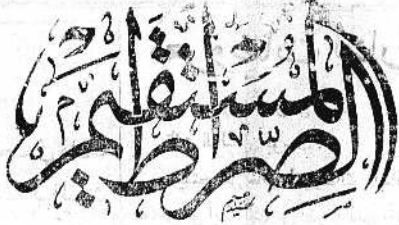 الصِّرٰط الْمُسْتَقِيْم